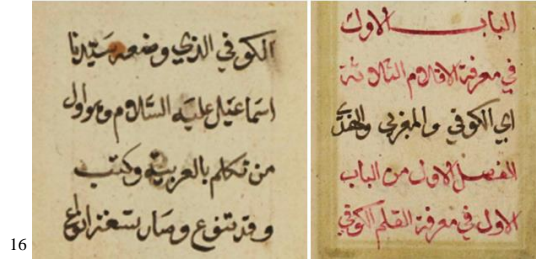 الباب الاول
في معرفة الاقلام الثلاثة
اي الكوفي والمغربي والهندي
الفصل الاول من الباب
الاول في معرفة القلم الكوفي
الكوفي الذي وضعه سيدنا
اسماعيل عليه السلام وهو اول
من تكلم بالعربية وكتب
وقد تنوع وصار تسعة انواع
16